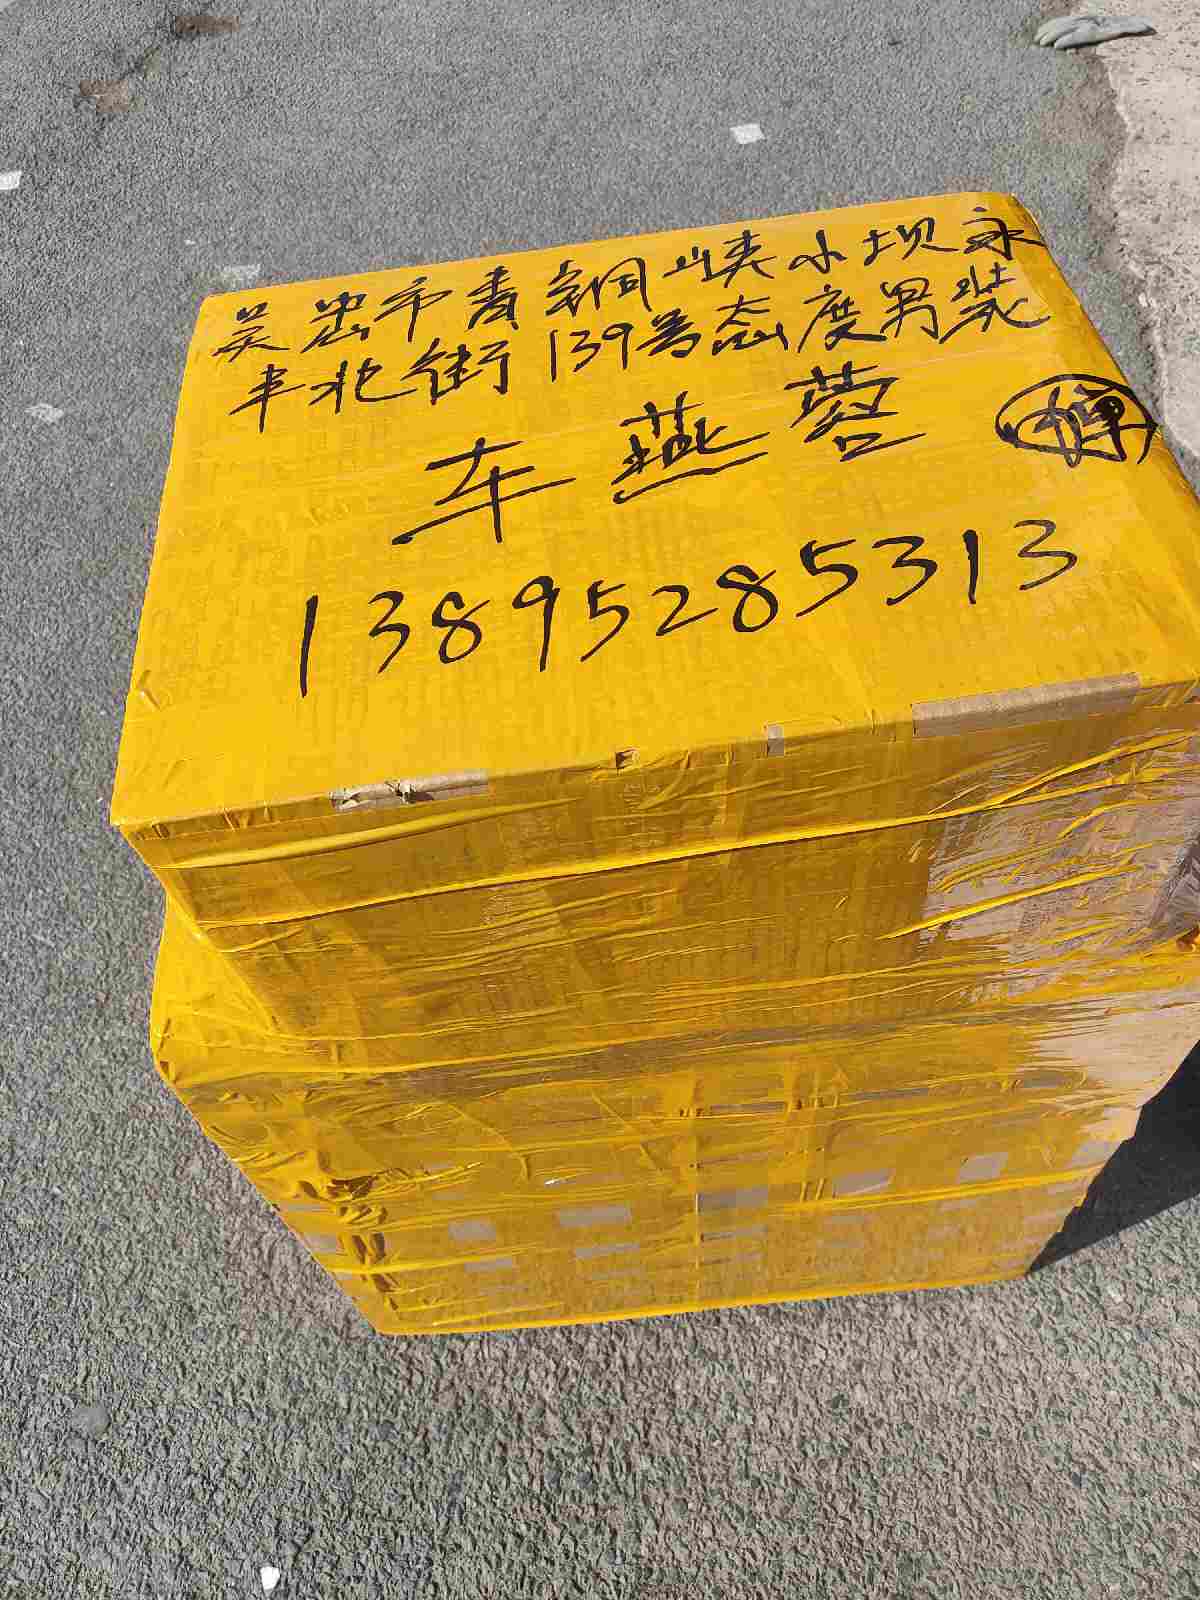 吴忠市青铜峡小坝永
丰北街139号态度男装
车燕蓉
13895285313